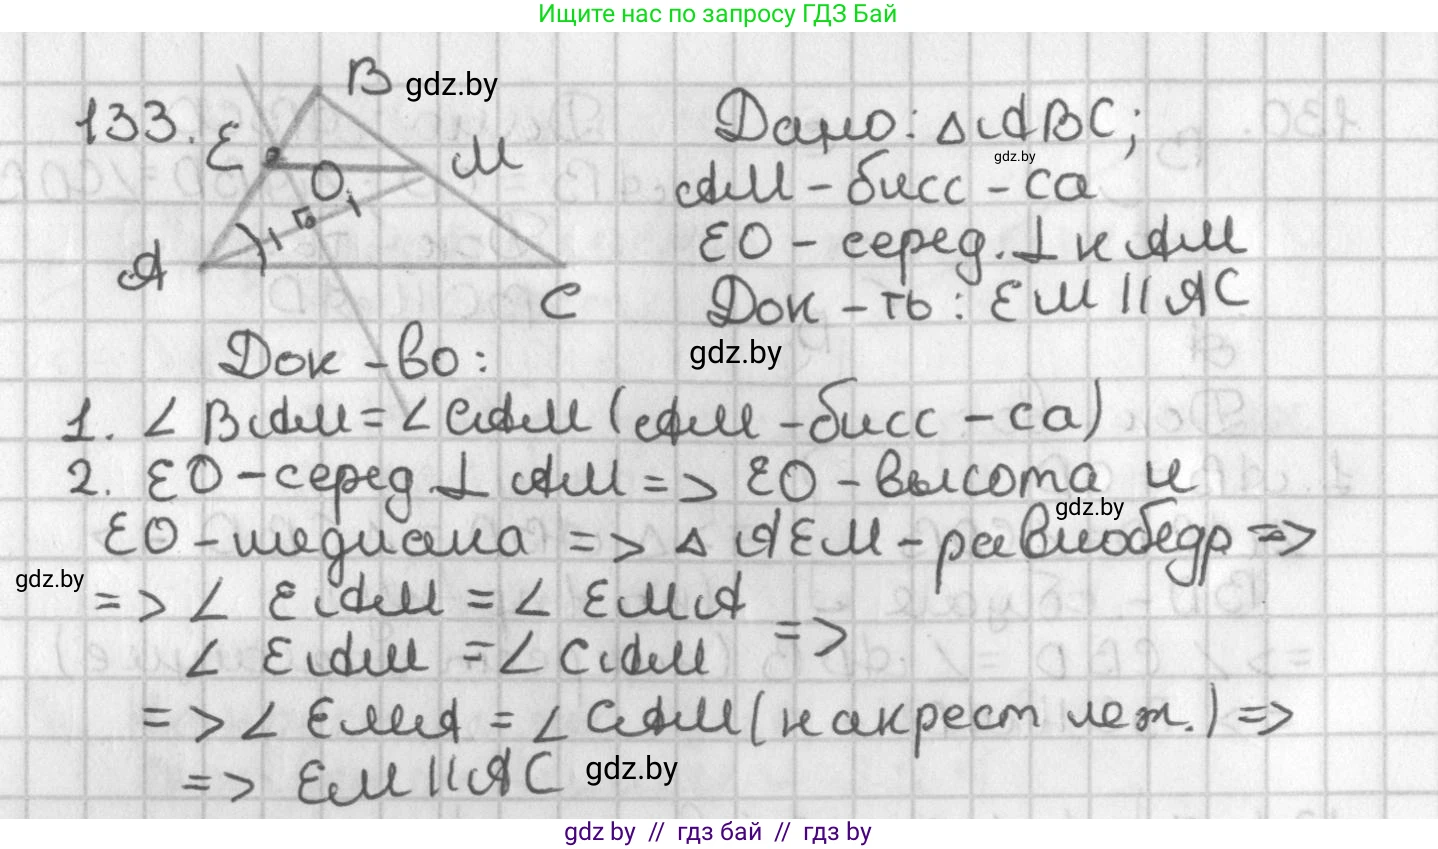 Ищите нас по запросу ГДЗ Бай
133.
B
E
O
M
A
C
gdz.by
Дано: △ABC;
gdz.by
AM - бисс - са
EO - серед. ⊥ к AM
Док - ть: EM || AC
Док - во:
gdz.by
1. ∠ BAM = ∠ CAM (AM - бисс - са)
2. EO - серед ⊥ AM => EO - высота и
gdz.by
EO - медиана => △ AEM - равнобедр =>
gdz.by
=> ∠ EAM = ∠ EMA
∠ EAM = ∠ CAM =>
=> ∠ EMA = ∠ CAM (накрест леж.) =>
=> EM || AC
gdz.by
gdz by // гдз бай // гдз by